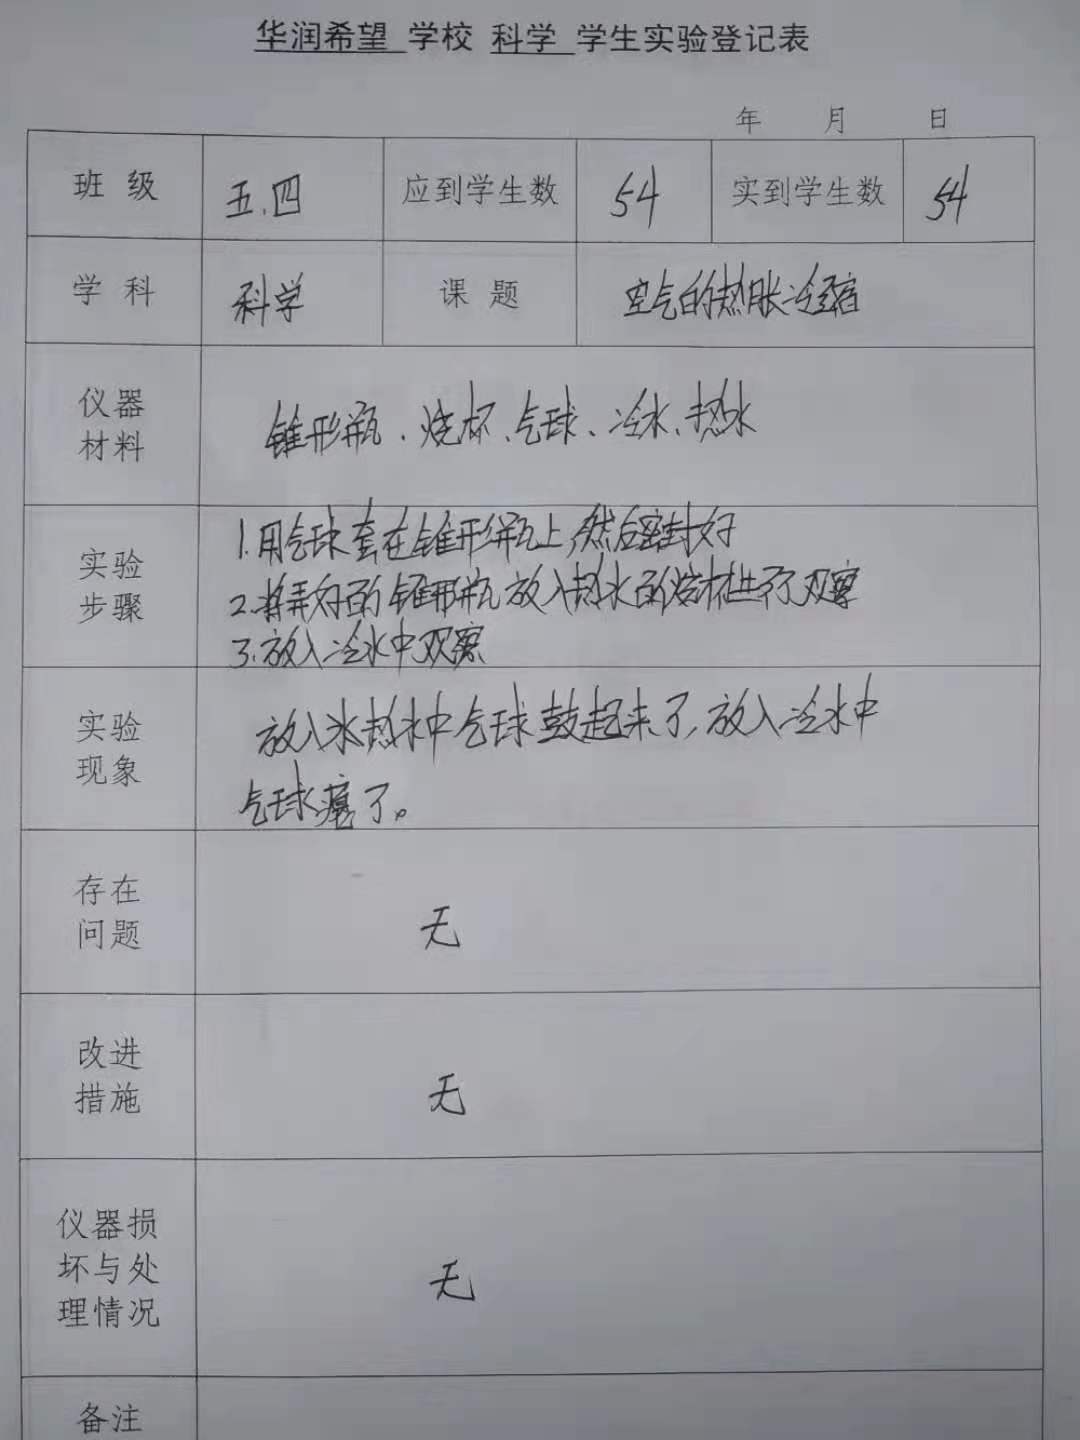 华润希望 学校 科学 学生实验登记表
年 月 日
班级 五.四 应到学生数 54 实到学生数 54
学科 科学 课题 空气的热胀冷缩
仪器
材料
锥形瓶、烧杯、气球、冷水、热水
实验
步骤
1.用气球套在锥形瓶上,然后密封好
2.将弄好的锥形瓶放入热水的烧杯进行观察
3.放入冷水中观察
实验
现象
放入热水中气球鼓起来了,放入冷水中
气球瘪了。
存在
问题
无
改进
措施
无
仪器损
坏与处
理情况
无
备注